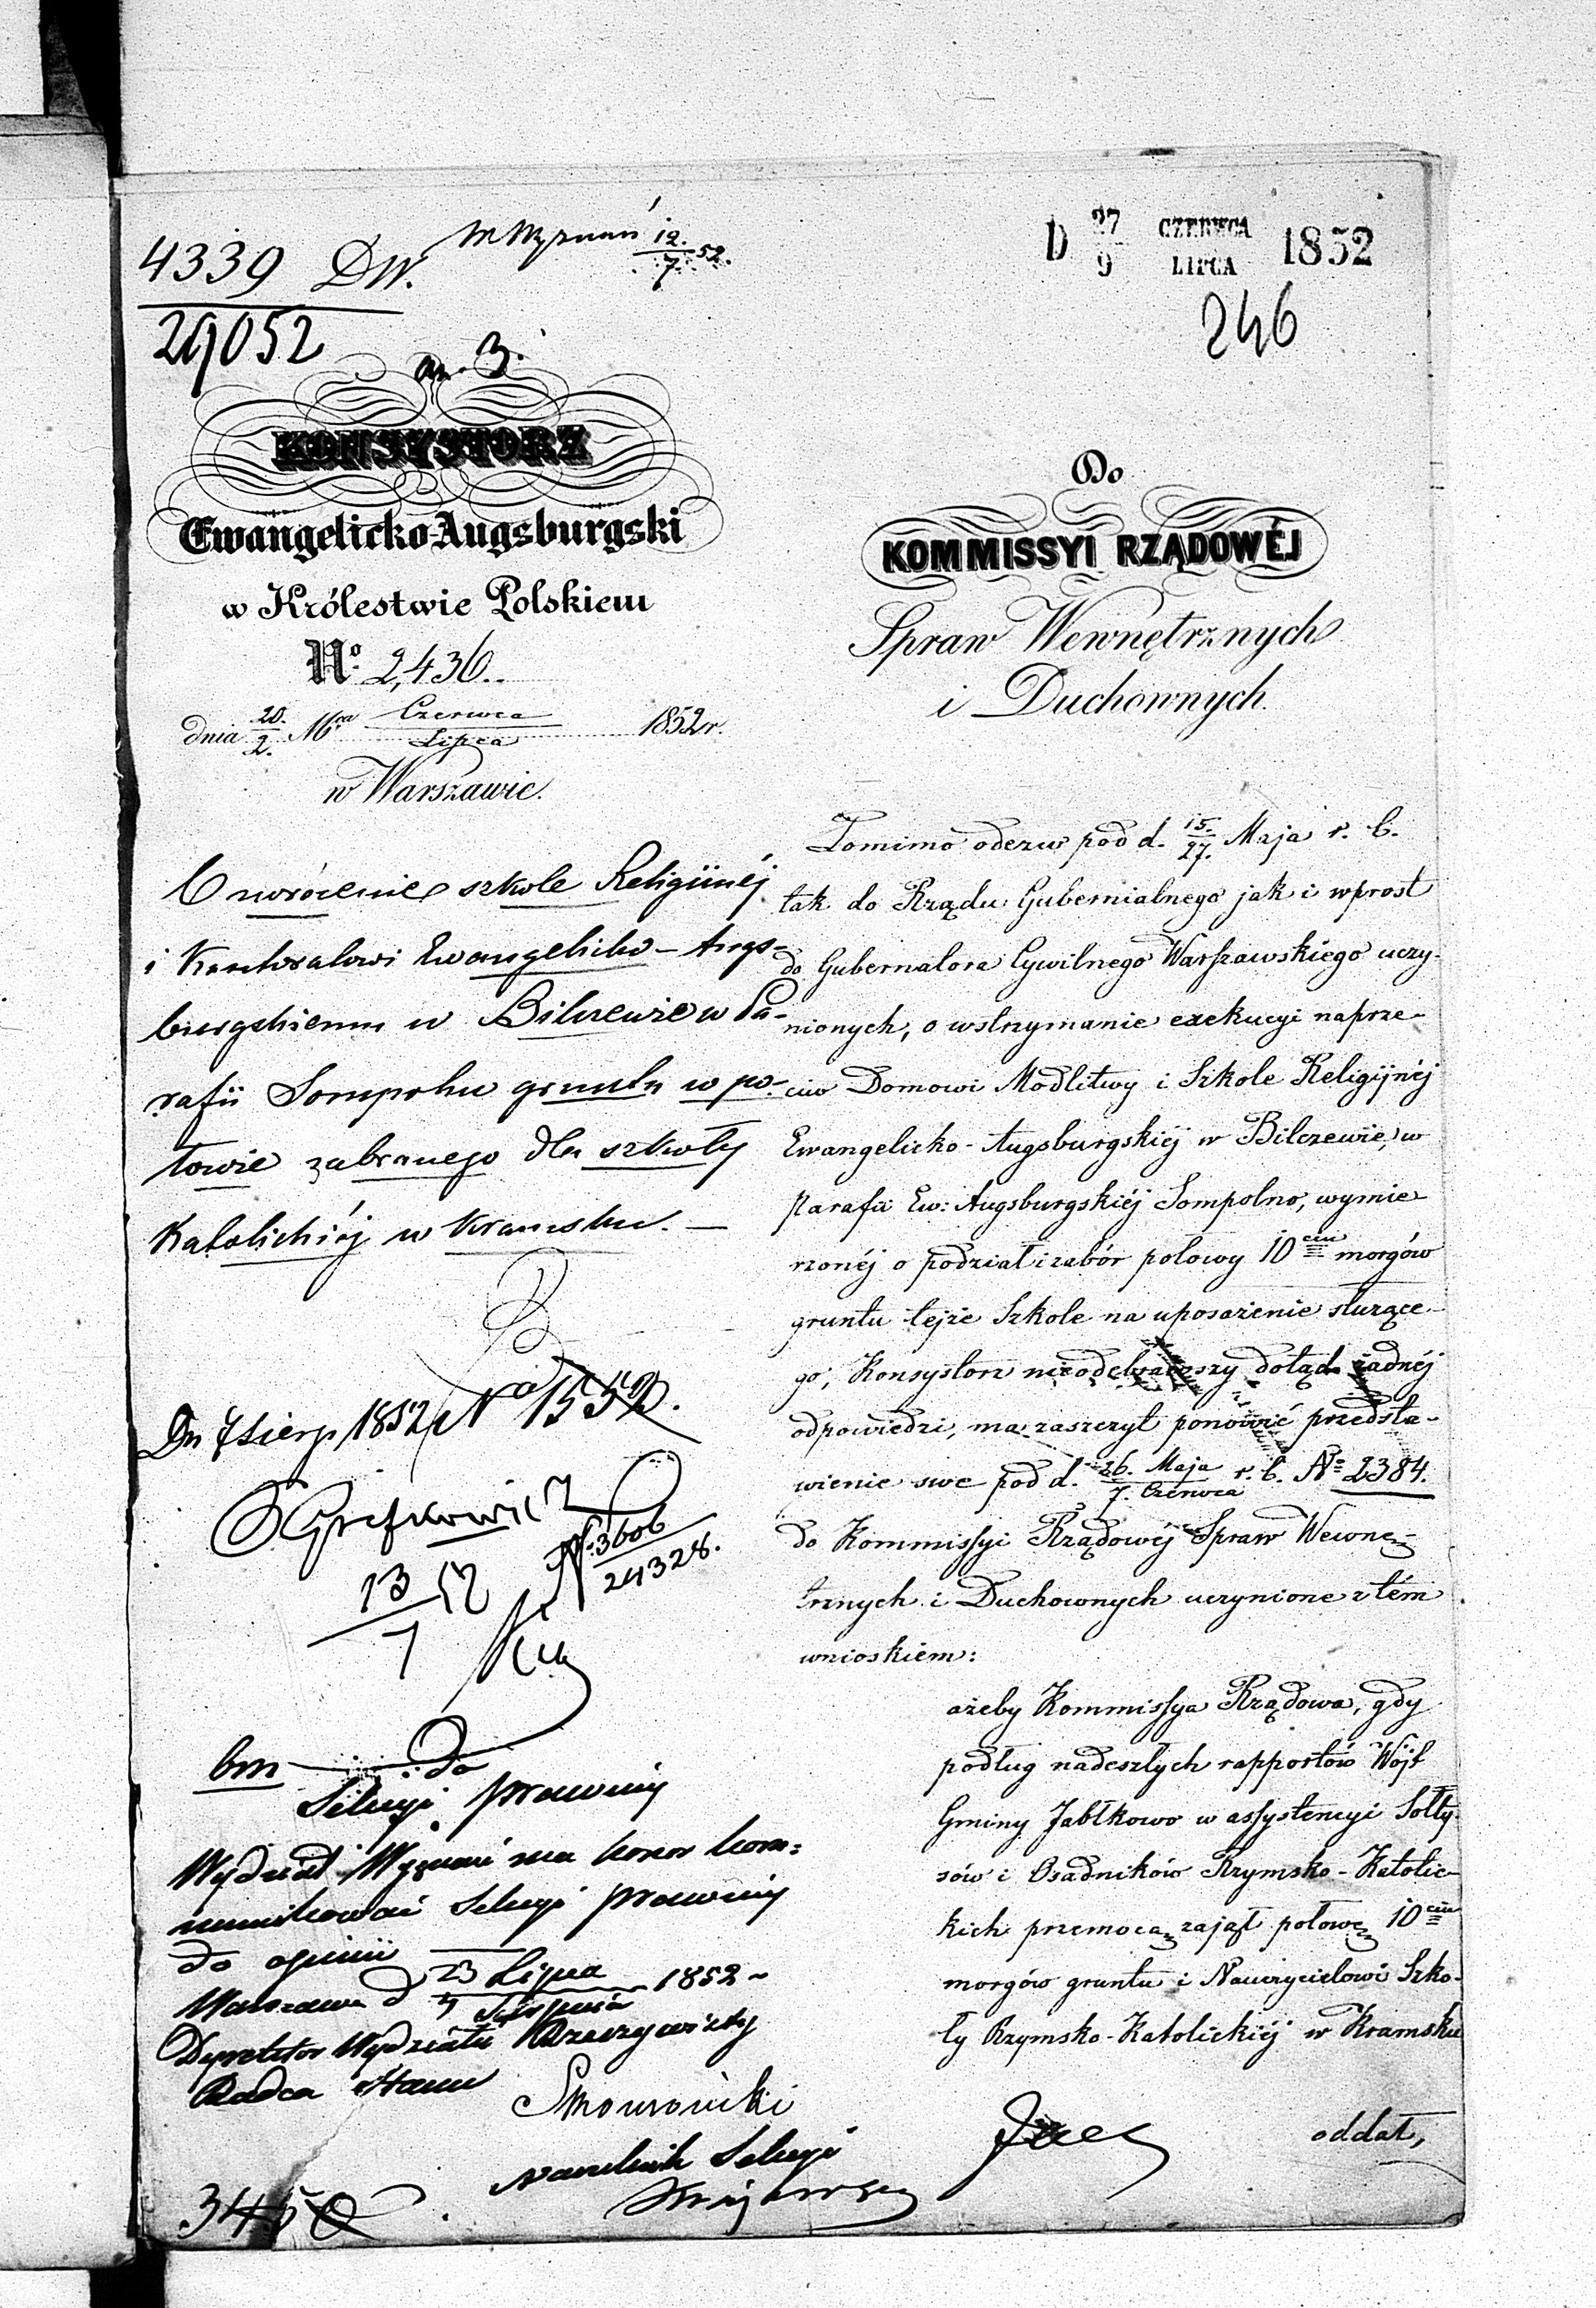 4339 DW.
29052
W Wyznań 12./7 52.
D 27/9 CZERWCA/LIPCA 1852
246
KONSYSTORZ
Ewangelicko-Augsburgski
w Królestwie Polskiem
No: 2,436.
dnia 20./2. Mca Czerwca/Lipca 1852 r.
w Warszawie.
O zwrócenie szkole Religijnéj
i Kantoratowi Ewangelicko-Augs-
burgskiemu w Bilczewie w Pa-
rafii Sompolno gruntu w po-
łowie zabranego dla szkoły
Katolickiéj w Kramsku. —
Dn 7 sierp 1852 No 1552.
13/7 52
N: 3606/24328.
bm do
Sekcyi prawnéj
Wydział Wyznań ma honor kom=
munikować Sekcyi prawnéj
do opinii
Warszawa d 23 Lipca/4 Sierpnia 1852
Dyrektor Wydziału Rzeczywisty
Radca Stanu
Skowroński
Naczelnik Sekcyi
3450
Do
KOMMISSYI RZĄDOWÉJ
Spraw Wewnętrznych
i Duchownych.
Pomimo odezw pod d. 15./27. Maja r. b.
tak do Rządu Gubernialnego jak i wprost
do Gubernatora Cywilnego Warszawskiego uczy-
nionych, o wstrzymanie exekucyi naprze-
ciw Domowi Modlitwy i Szkole Religijnéj
Ewangelicko-Augsburgskiéj w Bilczewie, w
Parafii Ew: Augsburgskiéj Sompolno, wymie
rzonéj o podział i zabór połowy 10ciu morgów
gruntu tejże Szkole na uposażenie służące-
go, Konsystorz nieodebrawszy dotąd żadnéj
odpowiedzi, ma zaszczyt ponowić przedsta-
wienie swe pod d. 26. Maja/7. Czerwca r. b. No 2384.
do Kommissyi Rządowéj Spraw Wewnę-
trznych i Duchownych uczynione z tém
wnioskiem:
ażeby Kommissya Rządowa, gdy
podług nadeszłych rapportów Wójt
Gminy Jabłkowo w assystencyi Sołty-
sów i Osadników Rzymsko-Katolic-
kich przemocą zajął połowę 10ciu
morgów gruntu i Nauczycielowi Szko-
ły Rzymsko-Katolickiéj w Kramsku
oddał,